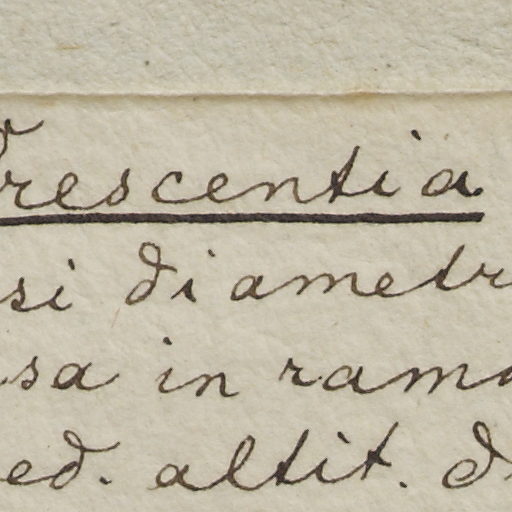 Crescentia
si diametr
sa in ramo
ed. altit. d